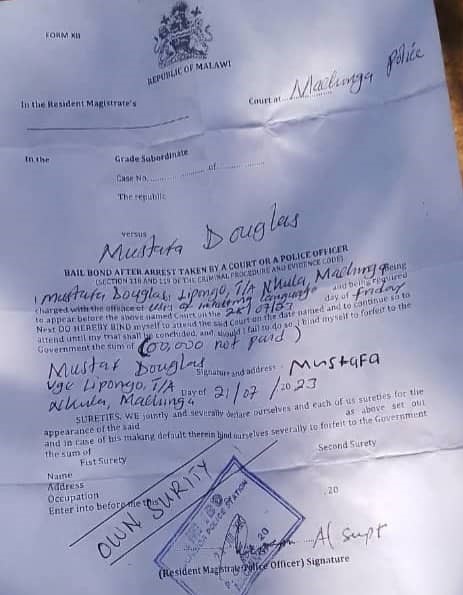 FORM XII
REPUBLIC OF MALAWI
In the Resident Magistrate's
Court at Machinga Police
In the Grade Subordinate
Case No. of
The republic
versus
Mustafa Douglas
BAIL BOND AFTER ARREST TAKEN BY A COURT OR A POLICE OFFICER
(SECTION 118 AND 119 OF THE CRIMINAL PROCEDURE AND EVIDENCE CODE)
I Mustafa Douglas, Lipongo, T/A Nkula, Machinga Being
charged with the offence of use of insulting language and being required
to appear before the above named Court on the 28/07/23 day of Friday
Next DO HEREBY BIND myself to attend the said Court on the date named and to continue so to
attend until my trial shall be concluded, and, should I fail to do so I bind myself to forfeit to the
Government the sum of (60,000 not paid)
Mustaf Douglas Signature and address - MUSTAFA
Vge Lipongo, T/A
Nkula, Machinga Day of 21/07/2023
SURETIES. WE jointly and severally declare ourselves and each of us sureties for the
appearance of the said as above set out
and in case of his making default therein bind ourselves severally to forfeit to the Government
the sum of
Fist Surety Second Surety
Name
Address
Occupation
Enter into before me this , 20
OWN SURITY
POLICE STATION
20
A/Supt
(Resident Magistrate/Police Officer) Signature